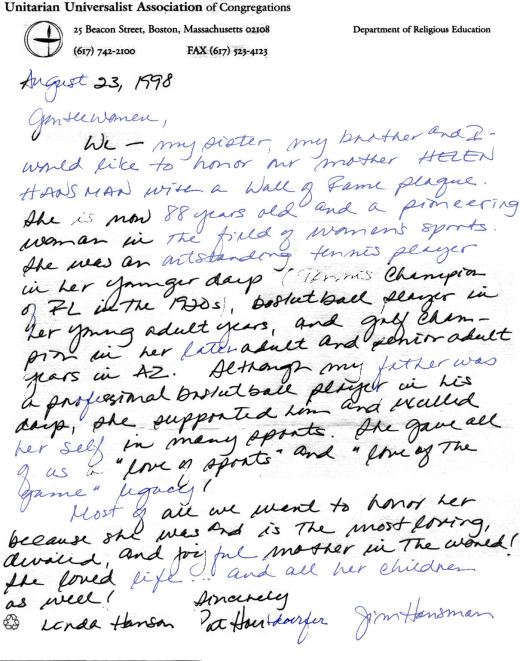 Unitarian Universalist Association of Congregations
25 Beacon Street, Boston, Massachusetts 02108 Department of Religious Education
(617) 742-2100 FAX (617) 523-4123
August 23, 1998
Gentlewomen,
We – my sister, my brother and I -
would like to honor our mother HELEN
HANSMAN with a Wall of Fame plaque.
She is now 88 years old and a pioneering
woman in the field of women's sports.
She was an outstanding tennis player
in her younger days (Tennis Champion
of FL in the 1920s), basketball player in
her young adult years, and golf cham-
pion in her later adult and senior adult
years in AZ. Although my father was
a professional basketball player in his
days, she supported him and excelled
her self in many sports. She gave all
of us a "love of sports" and "love of the
game" legacy!
Most of all we want to honor her
because she was and is the most loving,
devoted, and joyful mother in the world!
She loved life... and all her children
as well!
Sincerely
Linda Hanson Pat Jim Hansman